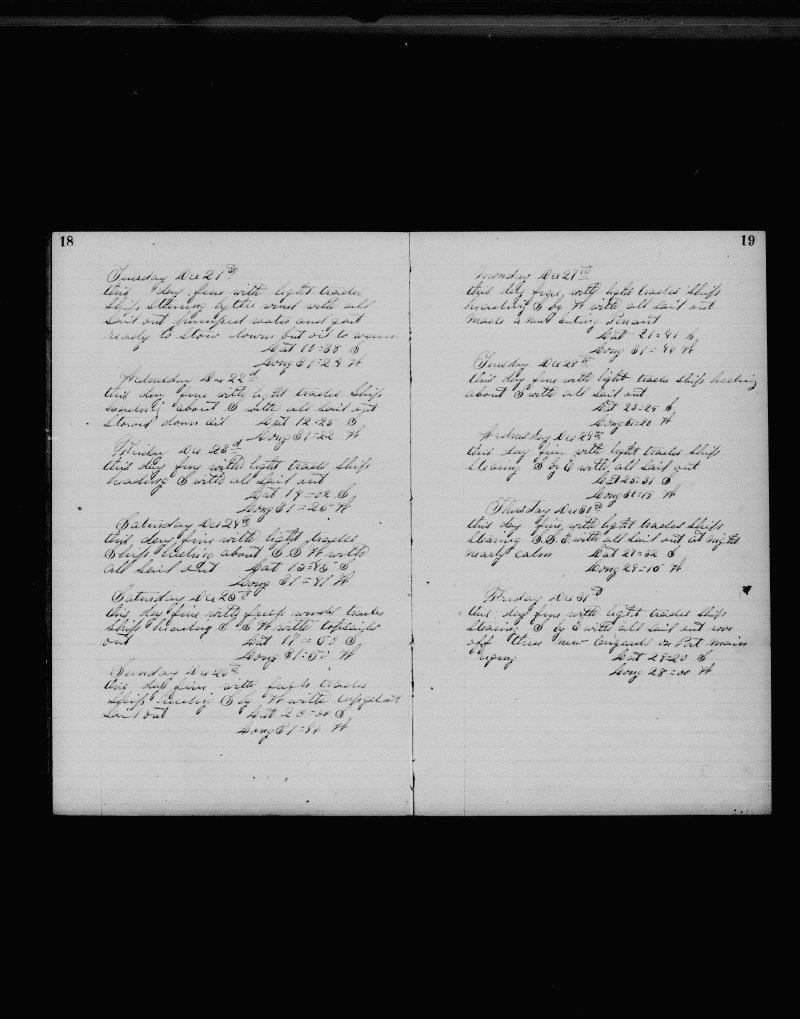 18
Tuesday Dec 21st
this day fine with light trades
Ship Stearing by the wind with all
Sail out pumped water and got
ready to Stow down but oil to warm
Lat 10=38 S
Long 31=24 W
Wednesday Dec 22d
this day fine with light trades Ship
about S with all Sail out
Stowed down oil Lat 12=25 S
Long 31=22 W
Friday Dec 23d
this day fine with light trades Ship
heading S with all Sail out
Lat 14=02 S
Long 31=25 W
Saturday Dec 24th
this day fine with light trades
Ship heading about S S W with
all Sail out Lat 15=45 S
Long 31=41 W
Saturday Dec 25th
this day fine with fresh trades
Ship heading S S W with topsails
out Lat 17=50 S
Long 31=50 W
Sunday Dec 26th
this day fine with fresh trades
Ship heading S by W with
Sail out Lat 20=00 S
Long 31=46 W
19
Monday Dec 27th
this day fine with light trades Ship
heading S by W with all Sail out
made a new Penant
Lat 21=41 S
Long 31=40 W
Tuesday Dec 28th
this day fine with light trades Ship heading
about S with all Sail out
Lat 23=25 S
Long W
Wednesday Dec 29th
this day fine with light trades Ship
Stearing S by E with all Sail out
Lat 25=31 S
Long 30=19 W
Thursday Dec 30th
this day fine with light trades Ship
Stearing S.S.E with all Sail out at night
nearly calm Lat 27=32 S
Long 29=15 W
Friday Dec 31st
this day fine with light trades Ship
Stearing S by E with all Sail out
off three new on Port main
riging Lat 29=20 S
Long 28=00 W